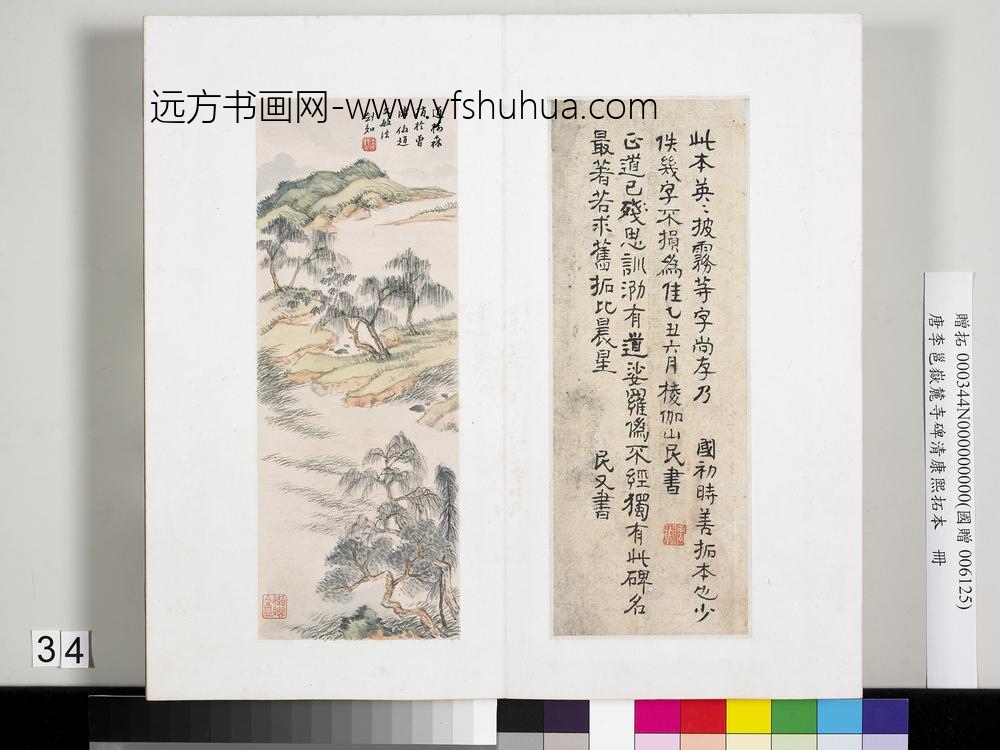 远方书画网-www.yfshuhua.com
此本英〻披霧等字尚存乃 國初時善拓本也少
佚幾字不損為佳乙丑六月棱伽山民書
正道已殘思訓泐有道娑羅偽不經獨有此碑名
最著若求舊拓比晨星 民又書
劍知
贈拓 000344N000000000(國贈 006125)
唐李邕嶽麓寺碑清康熙拓本 冊
34